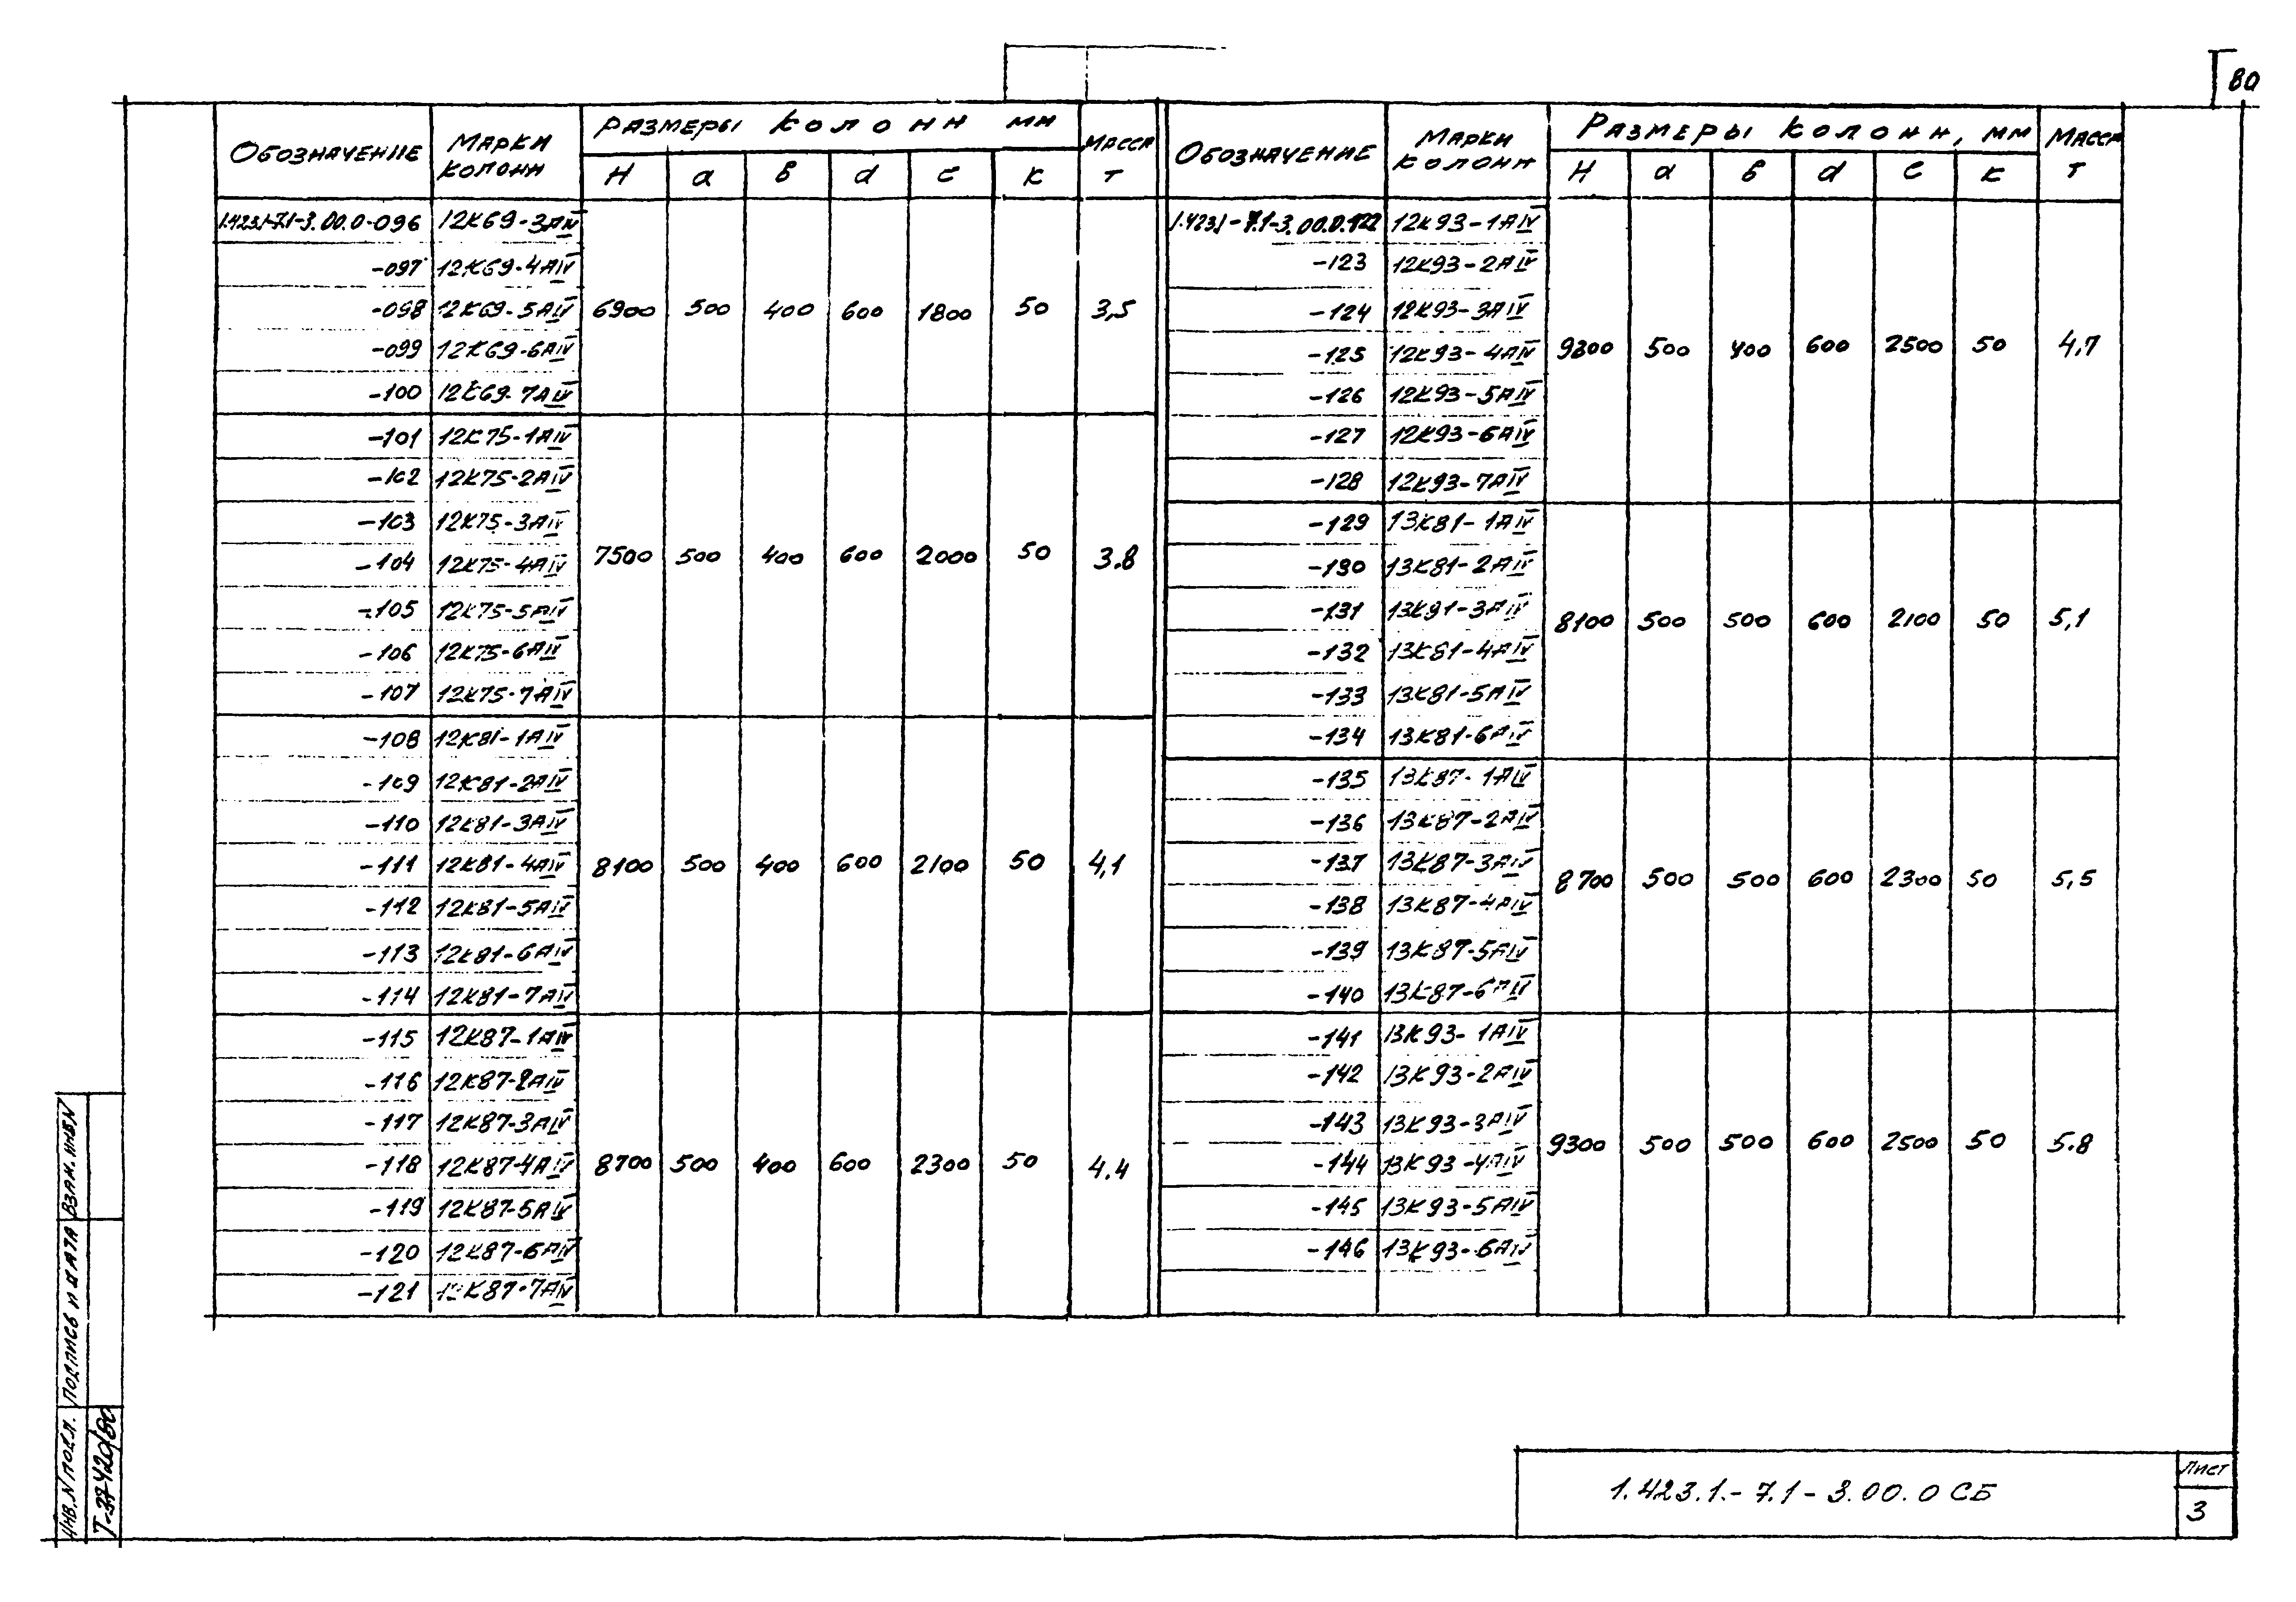 80
Обозначение Марки колонн Размеры колонн мм Масса т
H a в d c к
1.423.1-7.1-3.00.0-096 12К69-3АIV
-097 12К69-4АIV
-098 12К69-5АIV 6900 500 400 600 1800 50 3,5
-099 12К69-6АIV
-100 12К69-7АIV
-101 12К75-1АIV
-102 12К75-2АIV
-103 12К75-3АIV
-104 12К75-4АIV 7500 500 400 600 2000 50 3.8
-105 12К75-5АIV
-106 12К75-6АIV
-107 12К75-7АIV
-108 12К81-1АIV
-109 12К81-2АIV
-110 12К81-3АIV
-111 12К81-4АIV 8100 500 400 600 2100 50 4,1
-112 12К81-5АIV
-113 12К81-6АIV
-114 12К81-7АIV
-115 12К87-1АIV
-116 12К87-2АIV
-117 12К87-3АIV
-118 12К87-4АIV 8700 500 400 600 2300 50 4.4
-119 12К87-5АIV
-120 12К87-6АIV
-121 12К87-7АIV
Обозначение Марки колонн Размеры колонн, мм Масса т
H a в d c к
1.423.1-7.1-3.00.0.122 12К93-1АIV
-123 12К93-2АIV
-124 12К93-3АIV
-125 12К93-4АIV 9300 500 400 600 2500 50 4,7
-126 12К93-5АIV
-127 12К93-6АIV
-128 12К93-7АIV
-129 13К81-1АIV
-130 13К81-2АIV
-131 13К81-3АIV 8100 500 500 600 2100 50 5,1
-132 13К81-4АIV
-133 13К81-5АIV
-134 13К81-6АIV
-135 13К87-1АIV
-136 13К87-2АIV
-137 13К87-3АIV 8700 500 500 600 2300 50 5,5
-138 13К87-4АIV
-139 13К87-5АIV
-140 13К87-6АIV
-141 13К93-1АIV
-142 13К93-2АIV
-143 13К93-3АIV 9300 500 500 600 2500 50 5.8
-144 13К93-4АIV
-145 13К93-5АIV
-146 13К93-6АIV
Инв. N подл. Подпись и дата Взам. инв. N
Т-37420/80
1.423.1.-7.1-3.00.0 СБ
Лист
3